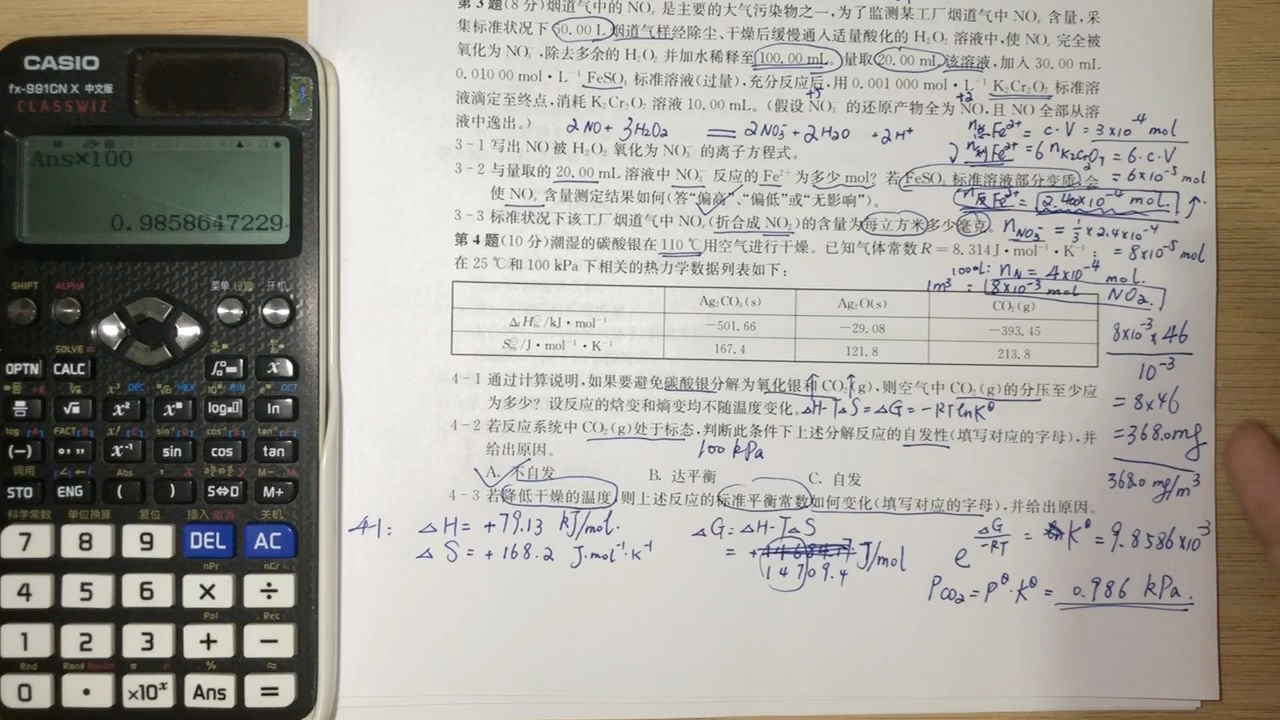 CASIO
fx-991CN X 中文版
CLASSWIZ
Ans×100
0.9858647229
SHIFT ALPHA 菜单 设置 开机
SOLVE =
OPTN CALC x
DEC HEX BIN OCT
√ x² log ln
(−) °ʼʼʼ x⁻¹ sin cos tan
STO ENG ( ) S⇔D M+
科学常数 单位换算 复位 插入 关机
7 8 9 DEL AC
nPr nCr
4 5 6 × ÷
Pol Rec
1 2 3 + −
Rnd Ran# RanInt π e ≈
0 • ×10ˣ Ans =
第3题(8分)烟道气中的 NOₓ 是主要的大气污染物之一,为了监测某工厂烟道气中 NOₓ 含量,采
集标准状况下 50.00 L 烟道气样经除尘、干燥后缓慢通入适量酸化的 H₂O₂ 溶液中,使 NOₓ 完全被
氧化为 NO₃⁻,除去多余的 H₂O₂ 并加水稀释至 100.00 mL。量取 20.00 mL 该溶液,加入 30.00 mL
0.010 00 mol·L⁻¹ FeSO₄ 标准溶液(过量),充分反应后,用 0.001 000 mol·L⁻¹ K₂Cr₂O₇ 标准溶
液滴定至终点,消耗 K₂Cr₂O₇ 溶液 10.00 mL。(假设 NO₃⁻ 的还原产物全为 NO,且 NO 全部从溶
+5 +2
液中逸出。) 2NO+3H₂O₂ == 2NO₃⁻+2H₂O +2H⁺
n总Fe²⁺ = c·V = 3×10⁻⁴ mol
3-1 写出 NO 被 H₂O₂ 氧化为 NO₃⁻ 的离子方程式。
n剩Fe²⁺ = 6nK₂Cr₂O₇ = 6·c·V
= 6×10⁻⁵ mol
3-2 与量取的 20.00 mL 溶液中 NO₃⁻ 反应的 Fe²⁺ 为多少 mol? 若 FeSO₄ 标准溶液部分变质,会
使 NOₓ 含量测定结果如何(答“偏高”、“偏低”或“无影响”)。
n反Fe²⁺ = 2.400×10⁻⁴ mol. ↑
3-3 标准状况下该工厂烟道气中 NOₓ(折合成 NO₂)的含量为每立方米多少毫克。
nNO₃⁻ = 1/3 × 2.4×10⁻⁴
= 8×10⁻⁵ mol
第4题(10分)潮湿的碳酸银在 110 ℃ 用空气进行干燥。已知气体常数 R = 8.314 J·mol⁻¹·K⁻¹;
在 25 ℃ 和 100 kPa 下相关的热力学数据列表如下:
100mL: nN = 4×10⁻⁴ mol.
1m³ : 8×10⁻³ mol NO₂.
Ag₂CO₃(s) Ag₂O(s) CO₂(g)
ΔfHm⊖/kJ·mol⁻¹ −501.66 −29.08 −393.45
Sm⊖/J·mol⁻¹·K⁻¹ 167.4 121.8 213.8
8×10⁻³×46
10⁻³
= 8×46
=368.0mg
368.0 mg/m³
4-1 通过计算说明,如果要避免碳酸银分解为氧化银和 CO₂(g),则空气中 CO₂(g)的分压至少应
为多少? 设反应的焓变和熵变均不随温度变化。ΔH-TΔS=ΔG=-RTlnK⊖
4-2 若反应系统中 CO₂(g)处于标态,判断此条件下上述分解反应的自发性(填写对应的字母),并
给出原因。 100 kPa
A. 不自发 B. 达平衡 C. 自发
4-3 若降低干燥的温度,则上述反应的标准平衡常数如何变化(填写对应的字母),并给出原因。
4-1: ΔH= +79.13 kJ/mol. ΔG= ΔH-TΔS
ΔS= +168.2 J·mol⁻¹·K⁻¹ = + 14709.4 J/mol
e^(ΔG/-RT) = K⊖ = 9.8586×10⁻³
PCO₂= P⊖·K⊖ = 0.986 kPa.